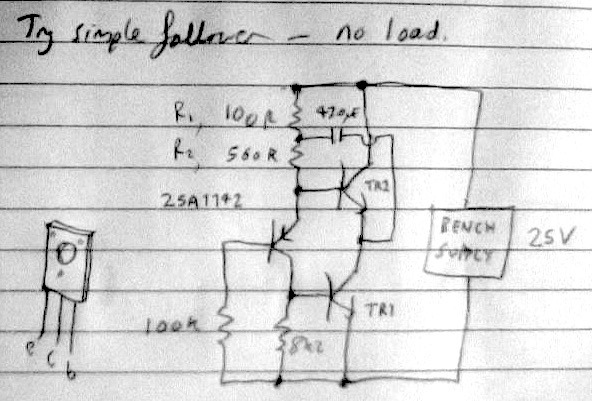 Try simple follower – no load.
R1, 100R 470µF
R2, 560R
2SA1142 TR2
BENCH
SUPPLY 25V
100k 8k2 TR1
e c b